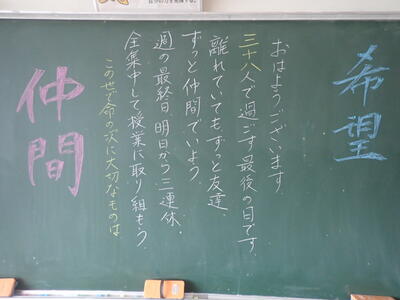 希望
おはようございます。
三十八人で過ごす最後の日です。
離れていてもずっと友達、
ずっと仲間でいよう。
週の最終日、明日から三連休、
全集中して授業に取り組もう。
このせで命の次に大切なものは、
仲間